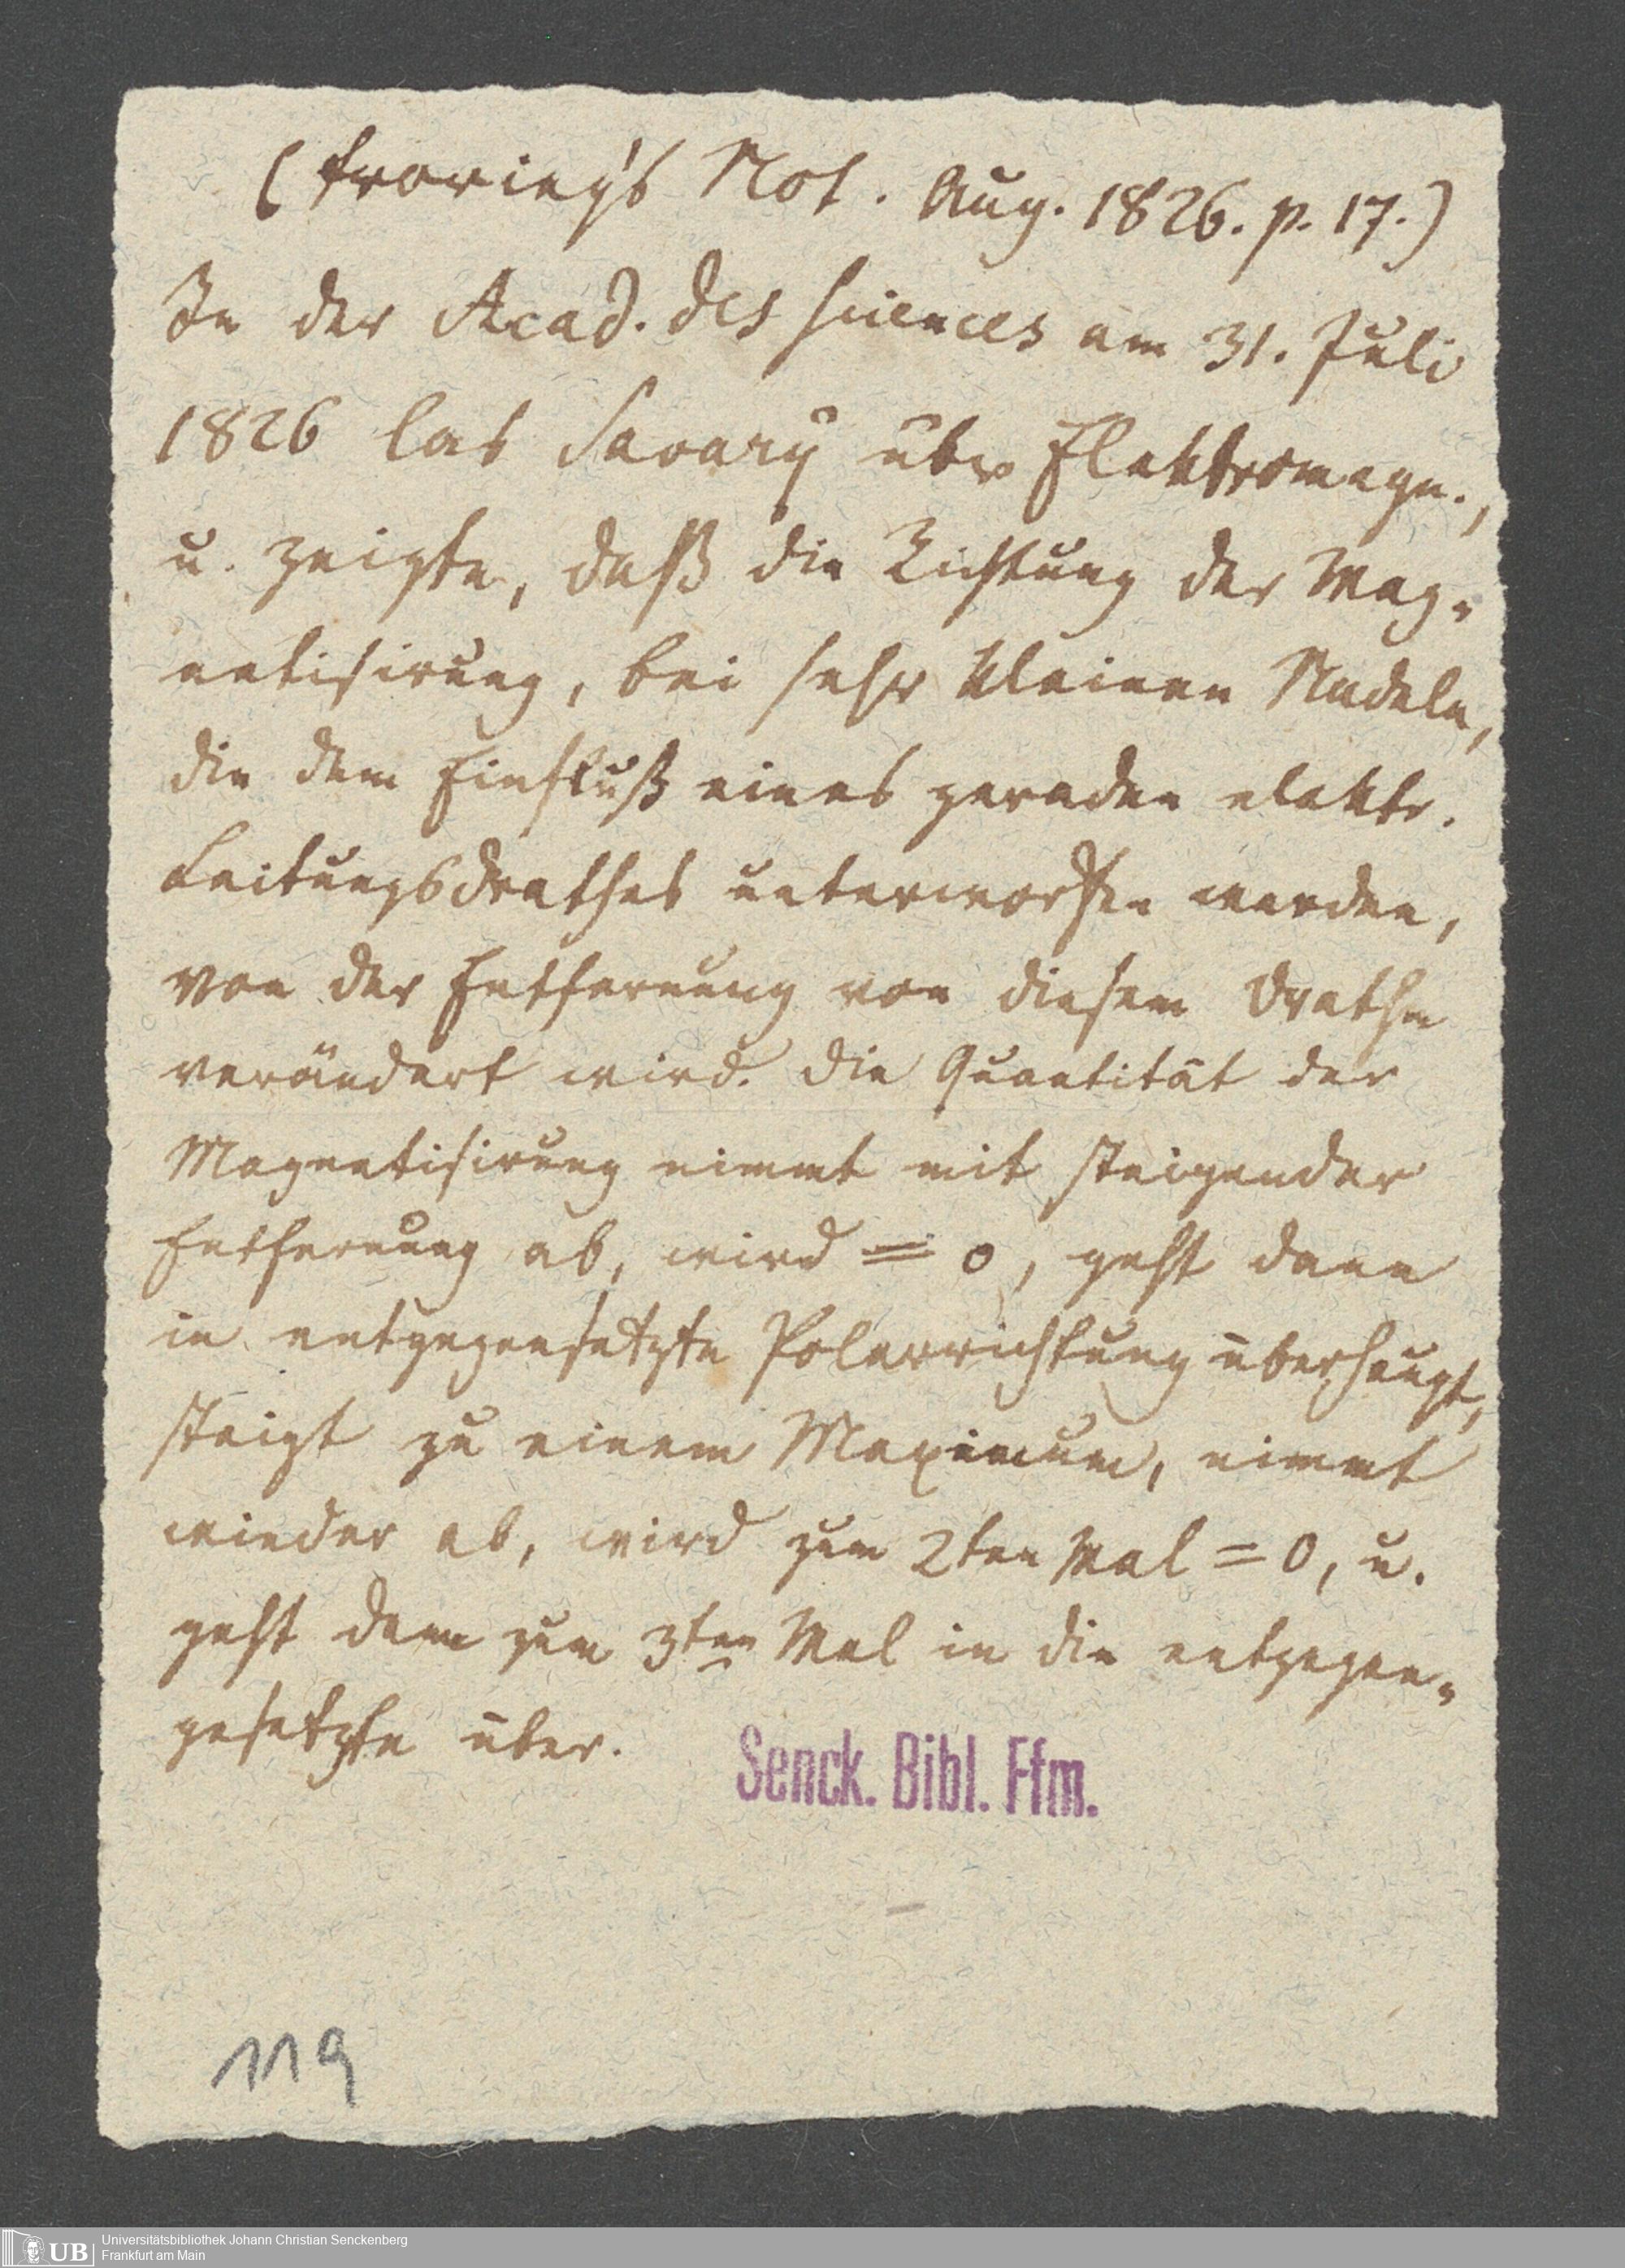 (Froriep's Not. Aug. 1826. p. 17.)
In der Acad. des sciences am 31. Juli
1826 las Savary über Elektromagn.,
u. zeigte, daß die Richtung der Mag-
netisirung, bei sehr kleinen Nadeln,
die dem Einfluß eines geraden elektr.
Leitungsdrathes unterworfen werden,
von der Entfernung von diesem Drathe
verändert wird. Die Quantität der
Magnetisirung nimmt mit steigender
Entfernung ab, wird = 0, geht dann
in entgegensetzte Polarrichtung überhaupt,
steigt zu einem Maximum, nimmt
wieder ab, wird zum 2ten Mal = 0, u.
geht dann zum 3ten Mal in die entgegen-
gesetzte über.
Senck. Bibl. Ffm.
119
UB Universitätsbibliothek Johann Christian Senckenberg
Frankfurt am Main